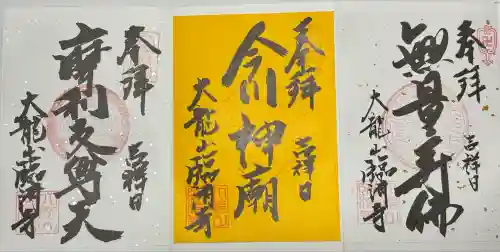 奉拝
摩利支尊天
吉祥日
大龍山臨済寺
奉拝
今川神廟
吉祥日
大龍山臨済寺
奉拝
無量寿佛
吉祥日
大龍山臨済寺